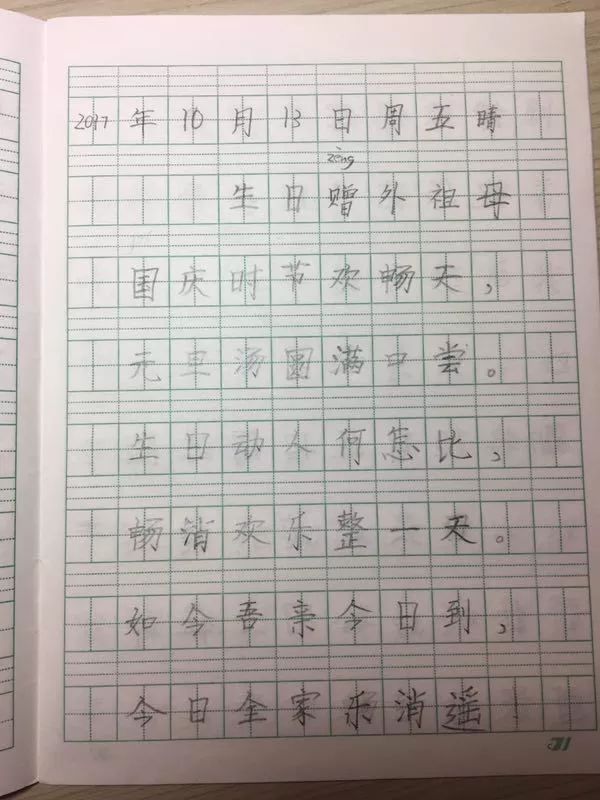 2017年10月13日周五晴
zèng
生日赠外祖母
国庆时节欢畅天，
元旦汤圆满口尝。
生日动人何怎比，
畅消欢乐整一天。
如今吾亲今日到，
今日全家乐消遥